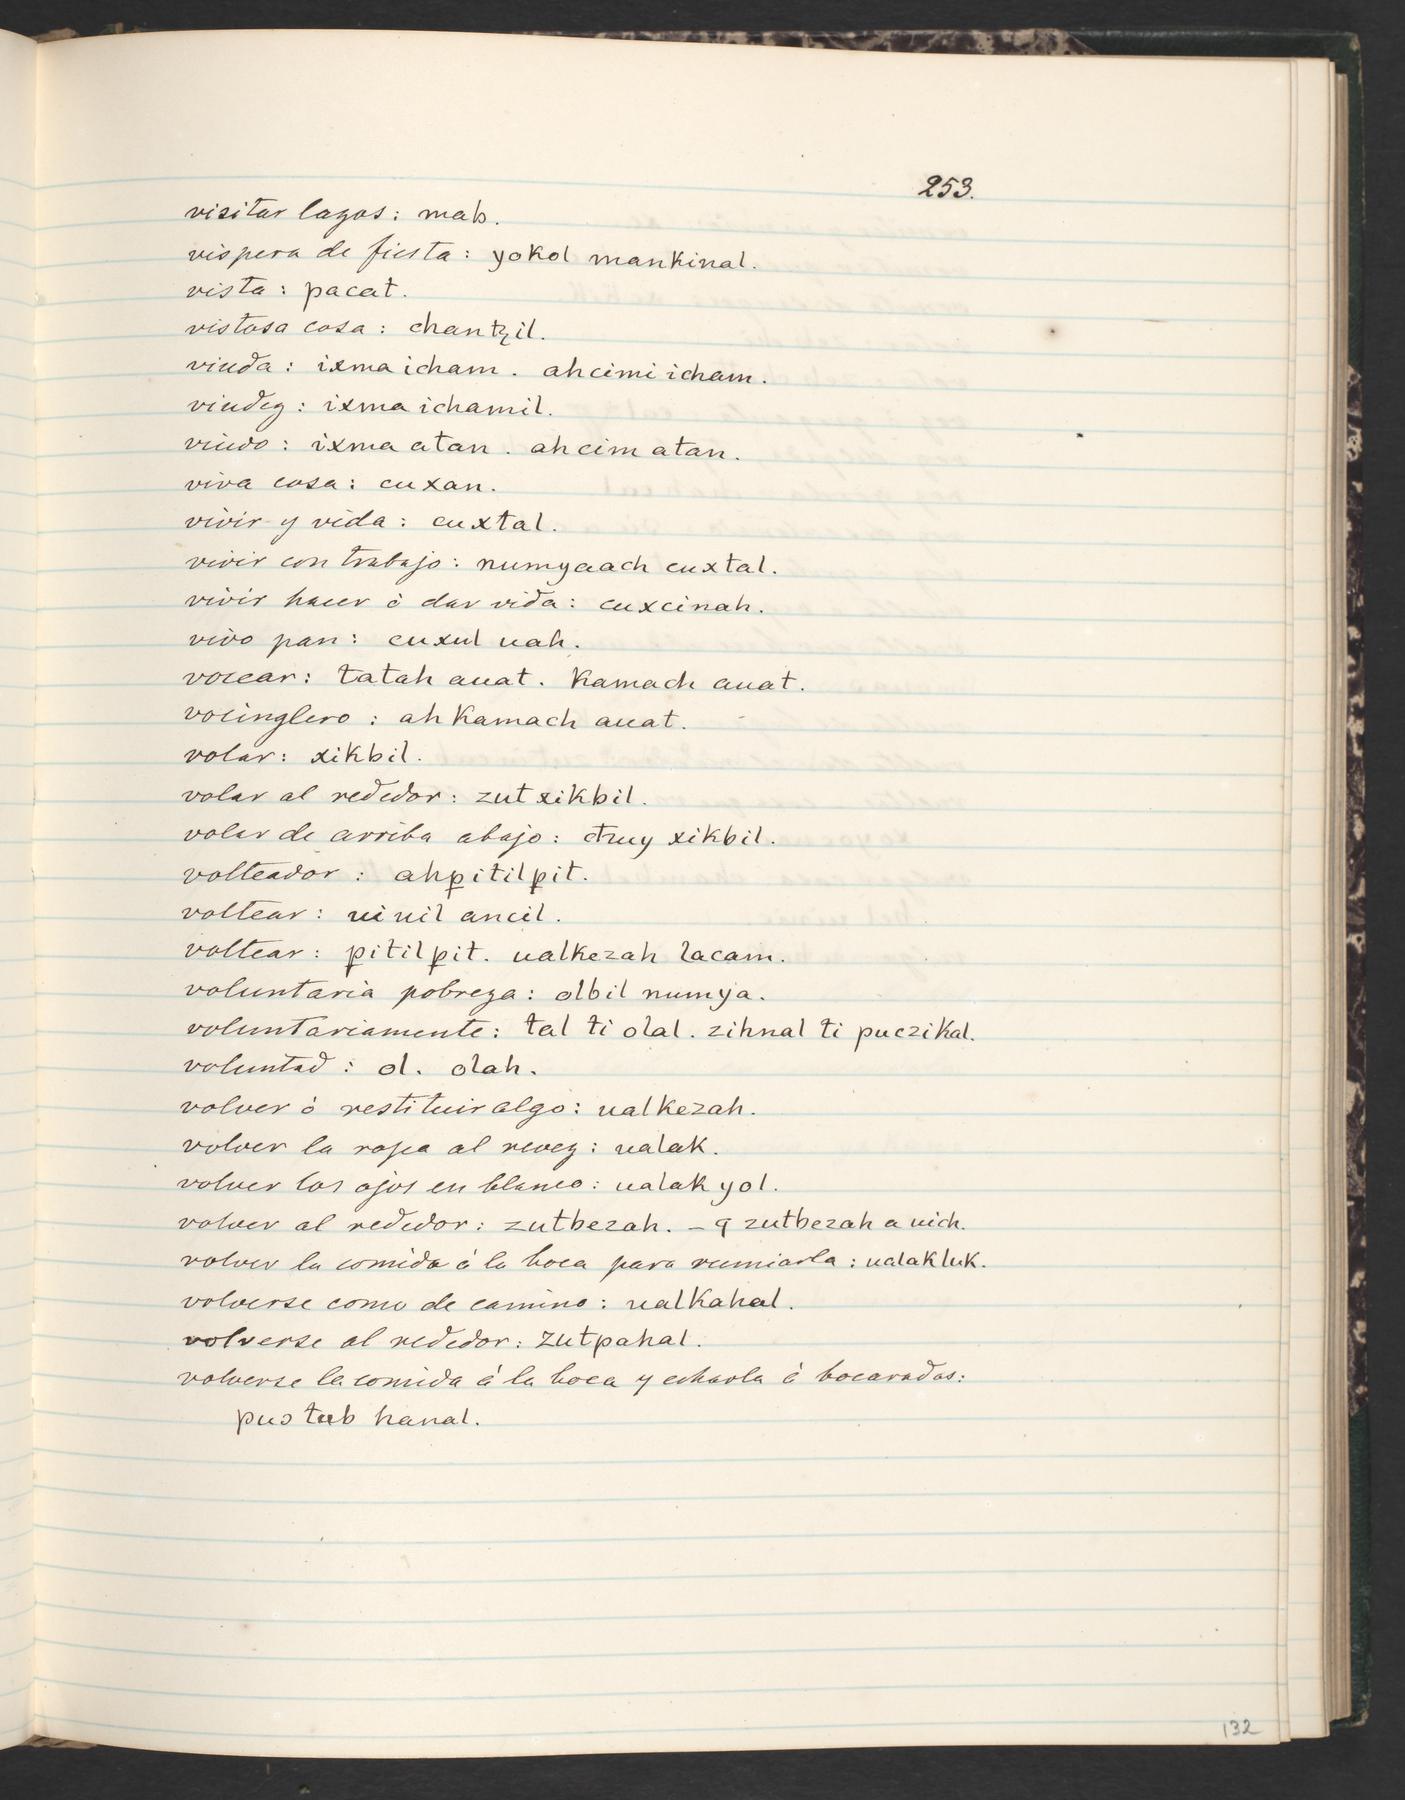 253.
visitar lazos: mab.
vispera de fiesta: yokol mankinal.
vista: pacat.
vistosa cosa: chantzil.
viuda: ixma icham. ahcimi icham.
viudez: ixma ichamil.
viudo: ixma atan. ah cim atan.
viva cosa: cuxan.
vivir y vida: cuxtal.
vivir con trabajo: numyaach cuxtal.
vivir hacer ó dar vida: cuxcinah.
vivo pan: cuxul uah.
vocear: tatah auat. kamach auat.
vocinglero: ah kamach auat.
volar: xikbil.
volar al rededor: zut xikbil.
volar de arriba abajo: chuy xikbil.
volteador: ahꝑitilꝑit.
voltear: uiuil ancil.
voltear: ꝑitilꝑit. ualkezah lacam.
voluntaria pobreza: olbil numya.
voluntariamente: tal ti olal. zihnal ti puczikal.
voluntad: ol. olah.
volver ó restituir algo: ualkezah.
volver la ropa al revez: ualak.
volver los ojos en blanco: ualak yol.
volver al rededor: zutbezah. – q zutbezah a uich.
volver la comida á la boca para rumiarla: ualakluk.
volverse como de camino: ualkahal.
volverse al rededor: zutpahal.
volverse la comida á la boca y echarla á bocaradas:
puɔ tub hanal.
132